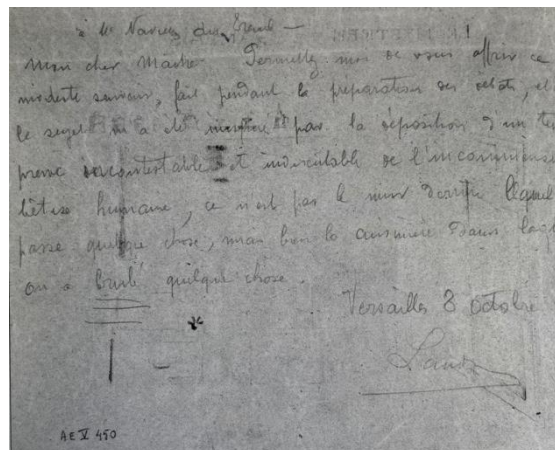 à Me Navières du
Mon cher Maître. Permettez moi de vous offrir ce
modeste souvenir, fait pendant la préparation des débats, et
le sujet m'a été inspiré par la déposition d'un té
preuve incontestable et indiscutable de l'incommense
bêtise humaine, ce n'est pas le mur derrière lequel
passe quelque chose, mais bien la cuisinière dans laq
on a brulé quelque chose.
Versailles 8 octobre
Landr
AE V 450